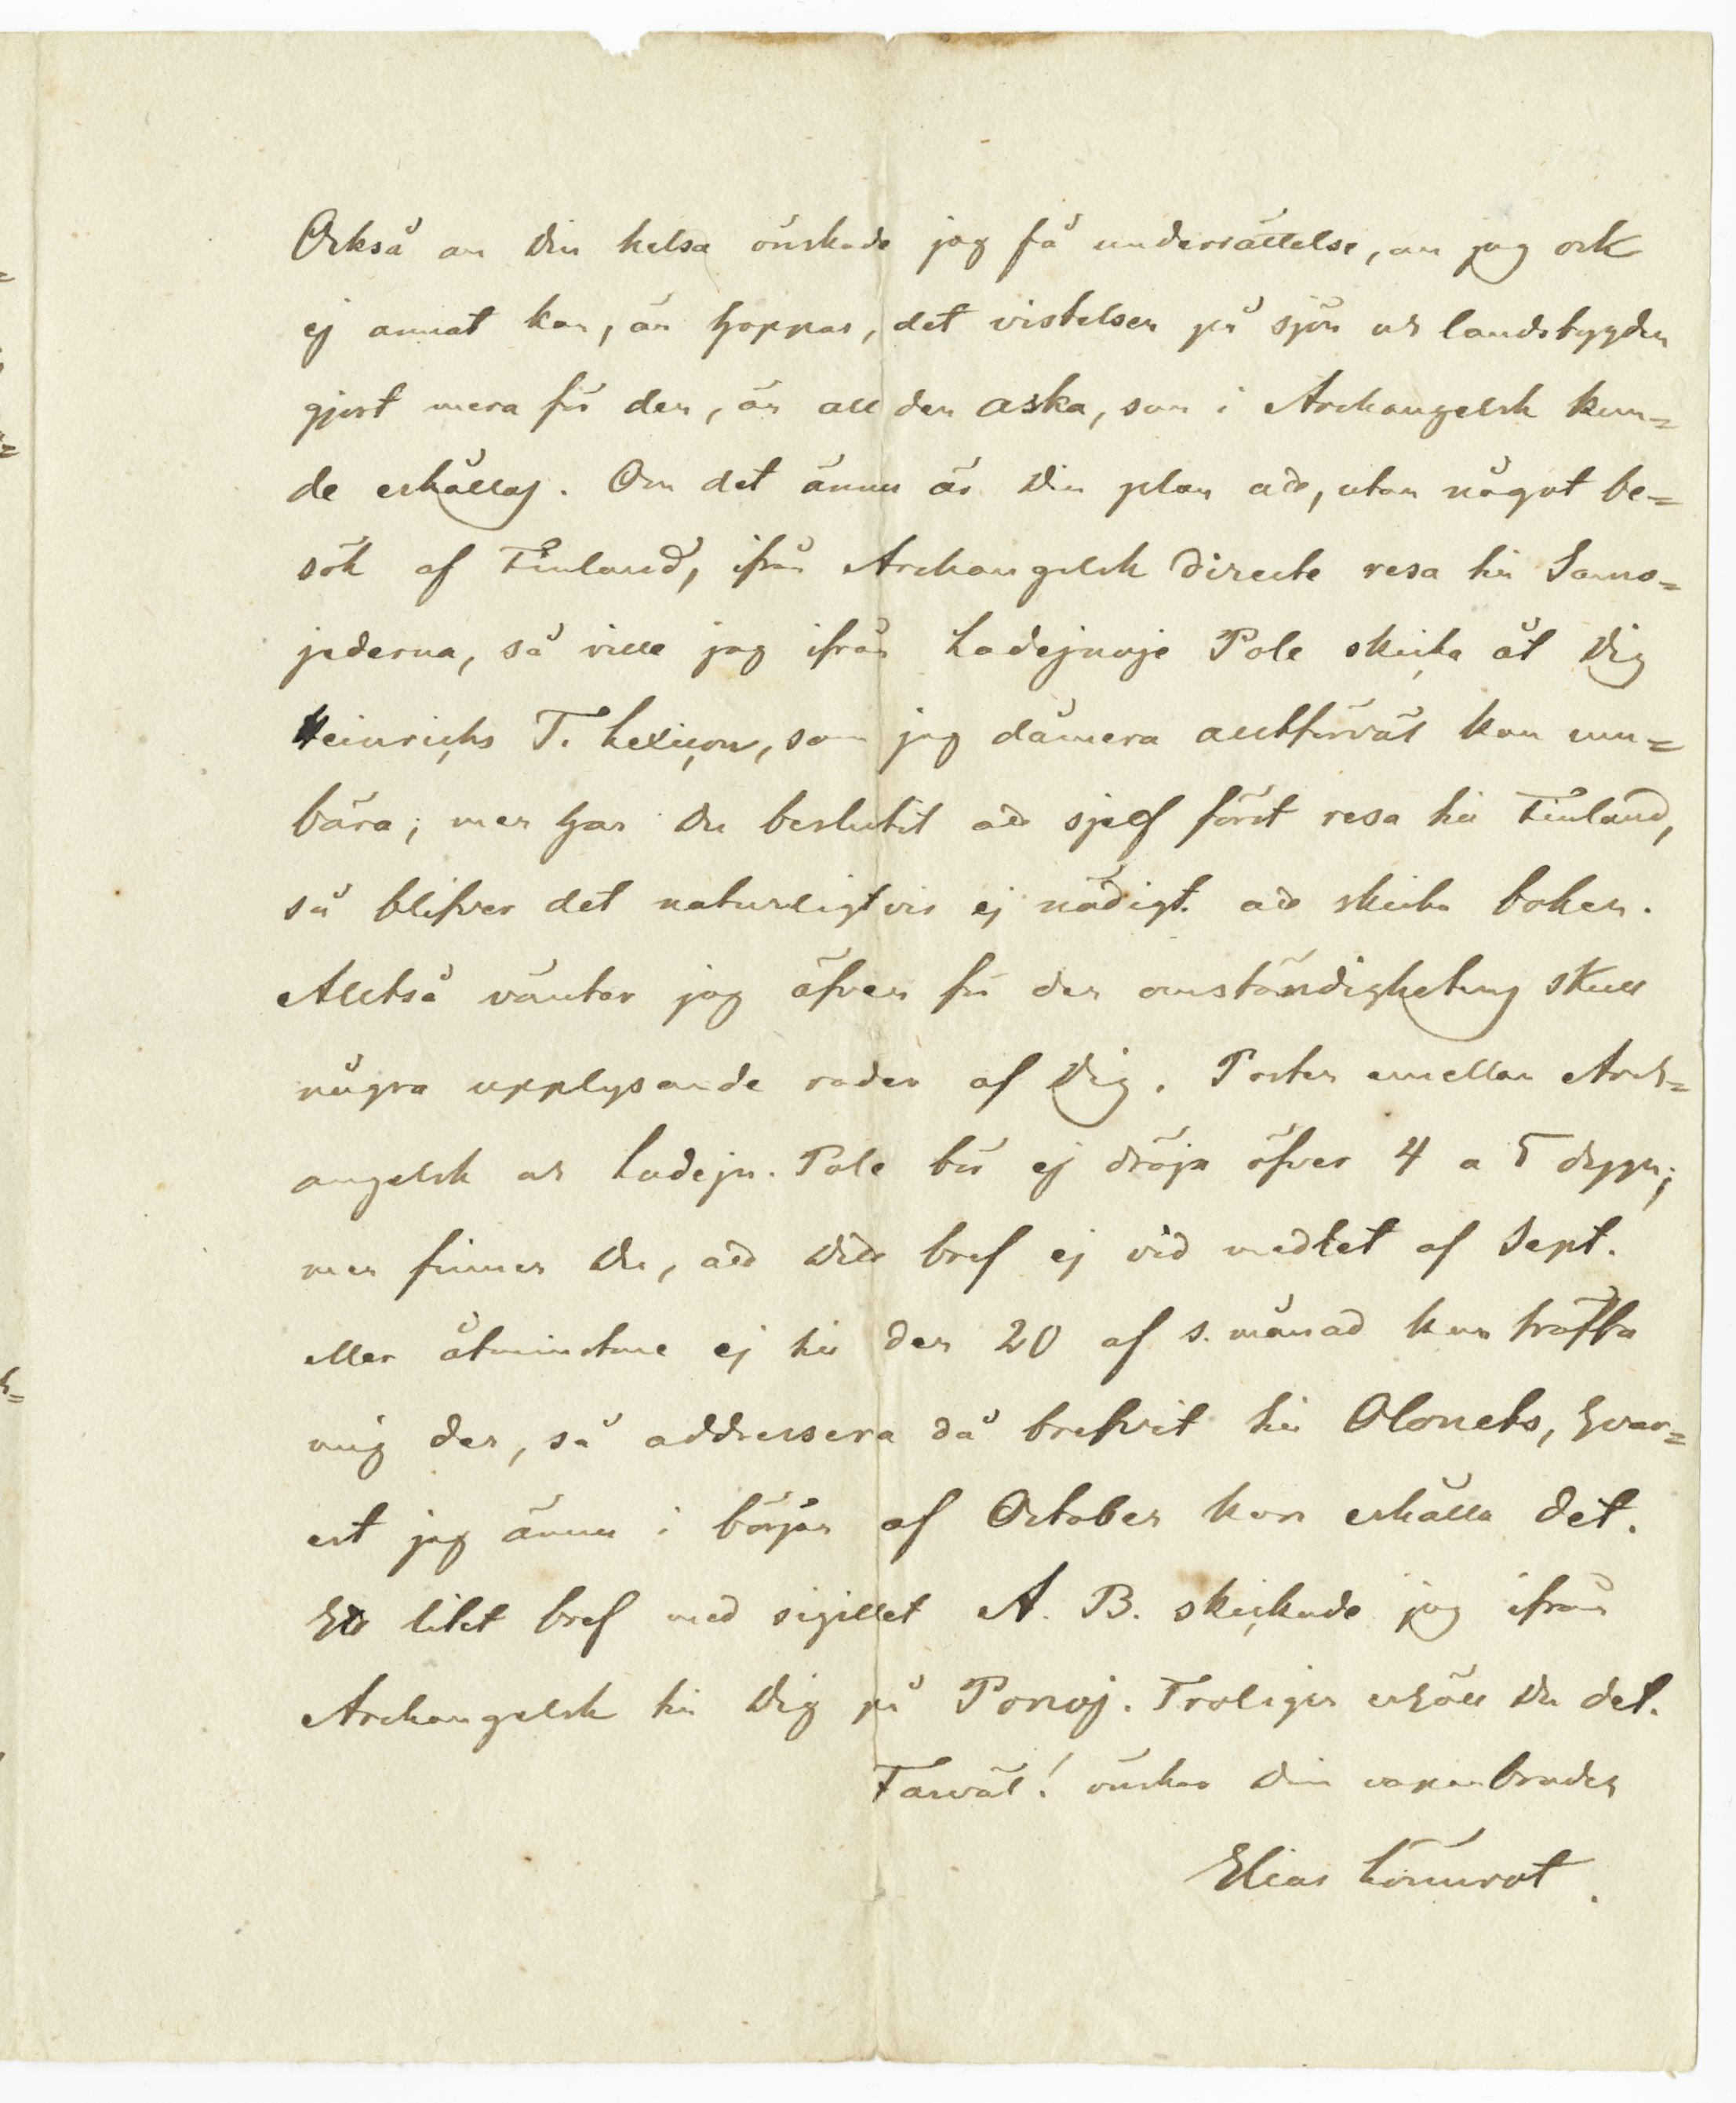 Också om Din helsa önskade jag få underrättelse, om jag ock
ej annat kan, än hoppas, det vistelsen på sjön och landsbygden
gjort mera för den, än all den aska, som i Archangelsk kun=
de erhållas. Om det ännu är Din plan att, utan något be=
sök af Finland, ifrån Archangelsk directe resa till Samo=
jederna, så ville jag ifrån Ladejnoje Pole skicka åt Dig
Heinrichs T. Lexicon, som jag dåmera alltförväl kan um=
bära; men har Du beslutit att sjelf först resa till Finland,
så blifver det naturligtvis ej nödigt att skicka boken.
Alltså väntar jag äfven för den omständighetens skull
några upplysande rader af Dig. Posten emellan Arch=
angelsk och Ladejn. Pole bör ej dröja öfver 4 a 5 dygn;
men finner Du, att Ditt bref ej vid medlet af Sept.
eller åtminstone ej till den 20 af s. månad kan träffa
mig der, så addressera då brefvet till Olonets, hvar=
est jag ännu i början af October kan erhålla det.
Ett litet bref med sigillet A. B. skickade jag ifrån
Archangelsk till Dig på Ponoj. Troligen erhöll Du det.
Farväl! önskar Din vapenbroder
Elias Lönnrot.